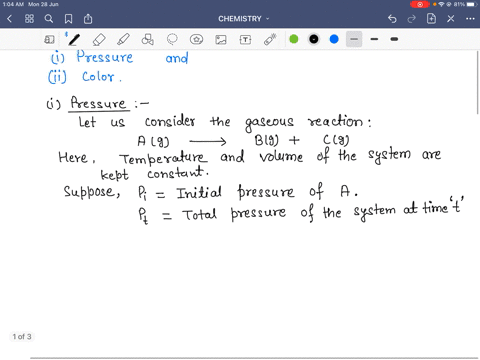 1:04 AM Mon 28 Jun
81%
CHEMISTRY
(i) Pressure and
(ii) Color.
(i) Pressure :-
Let us consider the gaseous reaction:
A(g) ⟶ B(g) + C(g)
Here, Temperature and volume of the system are
kept constant.
Suppose, Pi = Initial pressure of A.
Pt = Total pressure of the system at time 't'
1 of 3